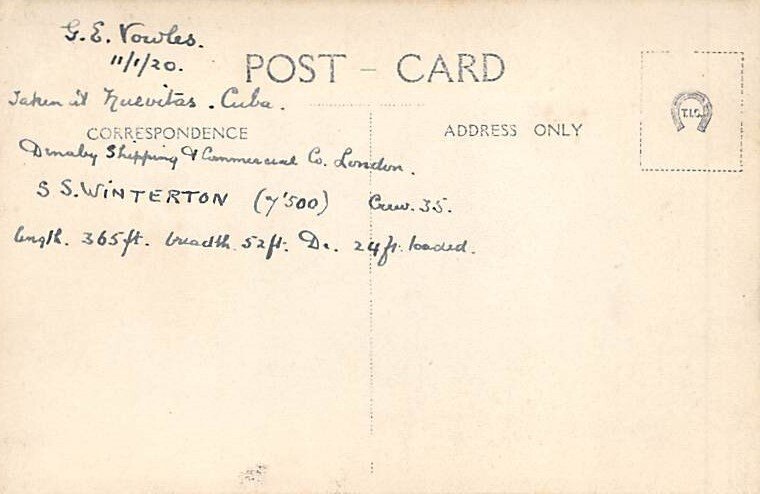 G. E. Vowles.
11/1/20.
POST - CARD
Taken at Nuevitas. Cuba.
CORRESPONDENCE
ADDRESS ONLY
T.I.C.
Denaby Shipping & Commercial Co. London.
S S. WINTERTON (7'500) Crew. 35.
length. 365ft. breadth. 52ft. De. 24ft. loaded.